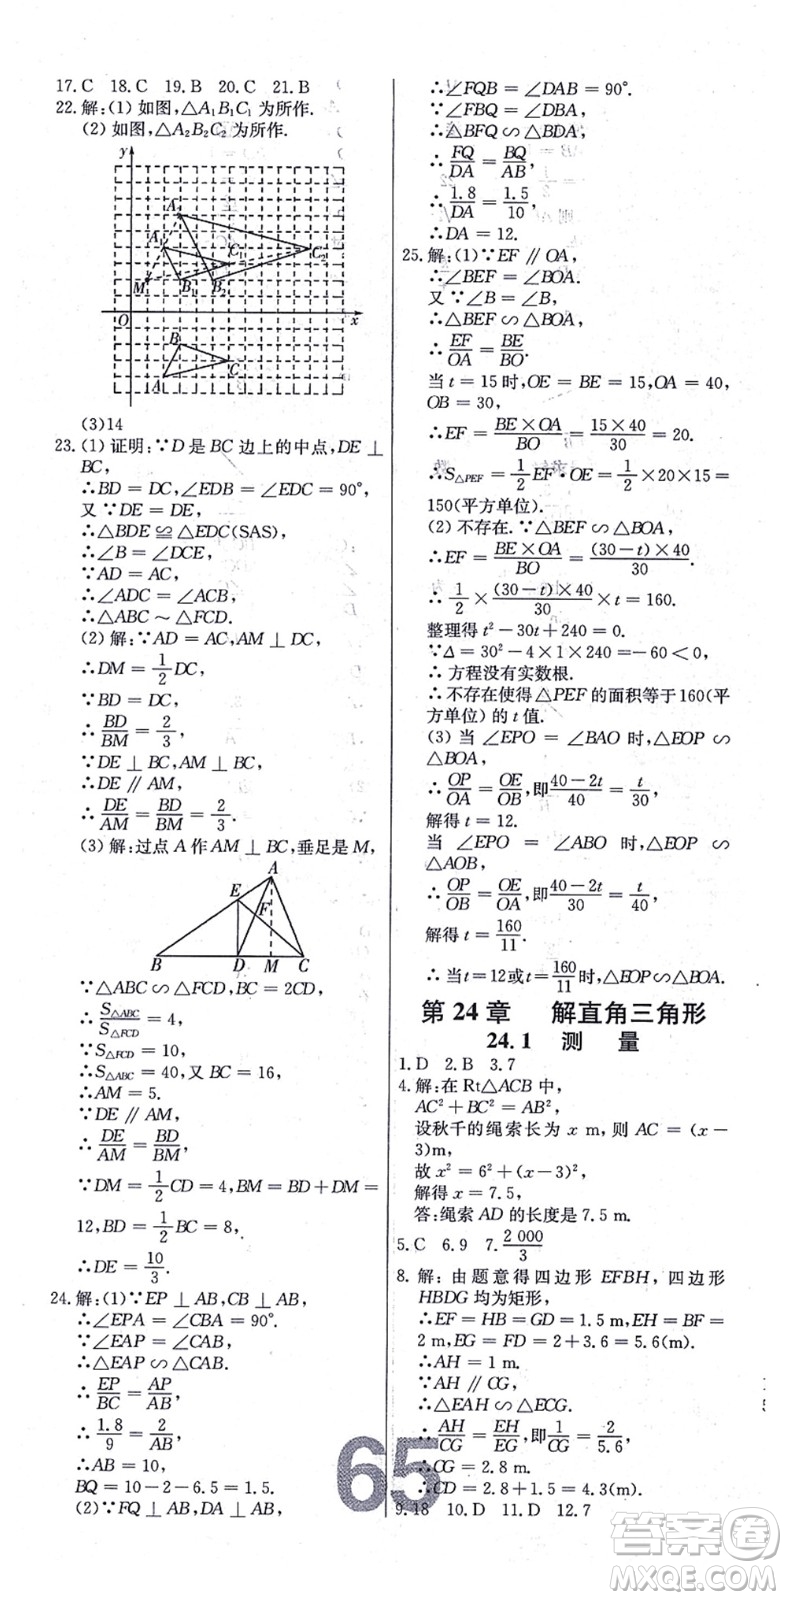 17. C  18. C  19. B  20. C  21. B
22. 解:(1) 如图,△A₁B₁C₁ 为所作.
(2) 如图,△A₂B₂C₂ 为所作.
y
A₂
A₁
C₁
C₂
M
B₁ B₂
O
x
B
C
A
(3)14
23. (1) 证明:∵D 是 BC 边上的中点,DE ⊥
BC,
∴BD = DC,∠EDB = ∠EDC = 90°,
又 ∵DE = DE,
∴△BDE ≌ △EDC(SAS),
∴∠B = ∠DCE,
∵AD = AC,
∴∠ADC = ∠ACD,
∴△ABC ~ △FCD.
(2) 解:∵AD = AC,AM ⊥ DC,
∴DM = 1/2 DC,
∵BD = DC,
∴BD/BM = 2/3,
∵DE ⊥ BC,AM ⊥ BC,
∴DE ∥ AM,
∴DE/AM = BD/BM = 2/3.
(3) 解:过点 A 作 AM ⊥ BC,垂足是 M,
A
E
F
B D M C
∵△ABC ∽ △FCD,BC = 2CD,
∴S△ABC/S△FCD = 4,
∵S△FCD = 10,
∴S△ABC = 40,又 BC = 16,
∴AM = 5.
∵DE ∥ AM,
∴DE/AM = BD/BM,
∵DM = 1/2 CD = 4,BM = BD + DM =
12,BD = 1/2 BC = 8,
∴DE = 10/3.
24. 解:(1)∵EP ⊥ AB,CB ⊥ AB,
∴∠EPA = ∠CBA = 90°.
∵∠EAP = ∠CAB,
∴△EAP ∽ △CAB.
∴EP/BC = AP/AB,
∴1.8/9 = 2/AB,
∴AB = 10,
BQ = 10 - 2 - 6.5 = 1.5.
(2)∵FQ ⊥ AB,DA ⊥ AB,
∴∠FQB = ∠DAB = 90°.
∵∠FBQ = ∠DBA,
∴△BFQ ∽ △BDA,
∴FQ/DA = BQ/AB,
∴1.8/DA = 1.5/10,
∴DA = 12.
25. 解:(1)∵EF ∥ OA,
∴∠BEF = ∠BOA.
又 ∵∠B = ∠B,
∴△BEF ∽ △BOA,
∴EF/OA = BE/BO.
当 t = 15 时,OE = BE = 15,OA = 40,
OB = 30,
∴EF = BE × OA/BO = 15 × 40/30 = 20.
∴S△PEF = 1/2 EF · OE = 1/2 × 20 × 15 =
150(平方单位).
(2) 不存在.∵△BEF ∽ △BOA,
∴EF = BE × OA/BO = (30 - t) × 40/30,
∴1/2 × (30 - t) × 40/30 × t = 160.
整理得 t² - 30t + 240 = 0.
∵Δ = 30² - 4 × 1 × 240 = -60 < 0,
∴ 方程没有实数根.
∴不存在使得 △PEF 的面积等于 160(平
方单位) 的 t 值.
(3) 当 ∠EPO = ∠BAO 时,△EOP ∽
△BOA,
∴OP/OA = OE/OB,即 40 - 2t/40 = t/30,
解得 t = 12.
当 ∠EPO = ∠ABO 时,△EOP ∽
△AOB,
∴OP/OB = OE/OA,即 40 - 2t/30 = t/40.
解得 t = 160/11.
∴当 t = 12 或 t = 160/11 时,△EOP ∽ △BOA.
第 24 章 解直角三角形
24.1 测 量
1. D  2. B  3. 7
4. 解:在 Rt△ACB 中,
AC² + BC² = AB²,
设秋千的绳索长为 x m,则 AC = (x -
3)m,
故 x² = 6² + (x - 3)²,
解得 x = 7.5,
答:绳索 AD 的长度是 7.5 m.
5. C  6. 9  7. 2 000/3
8. 解:由题意得四边形 EFBH,四边形
HBDG 均为矩形,
∴EF = HB = GD = 1.5 m,EH = BF =
2 m,EG = FD = 2 + 3.6 = 5.6(m).
∴AH = 1 m.
∵AH ∥ CG,
∴△EAH ∽ △ECG.
∴AH/CG = EH/EG,即 1/CG = 2/5.6,
∴CG = 2.8 m.
∴CD = 2.8 + 1.5 = 4.3(m).
9. 18  10. D  11. D  12. 7
65
答案圈
MXQE.COM